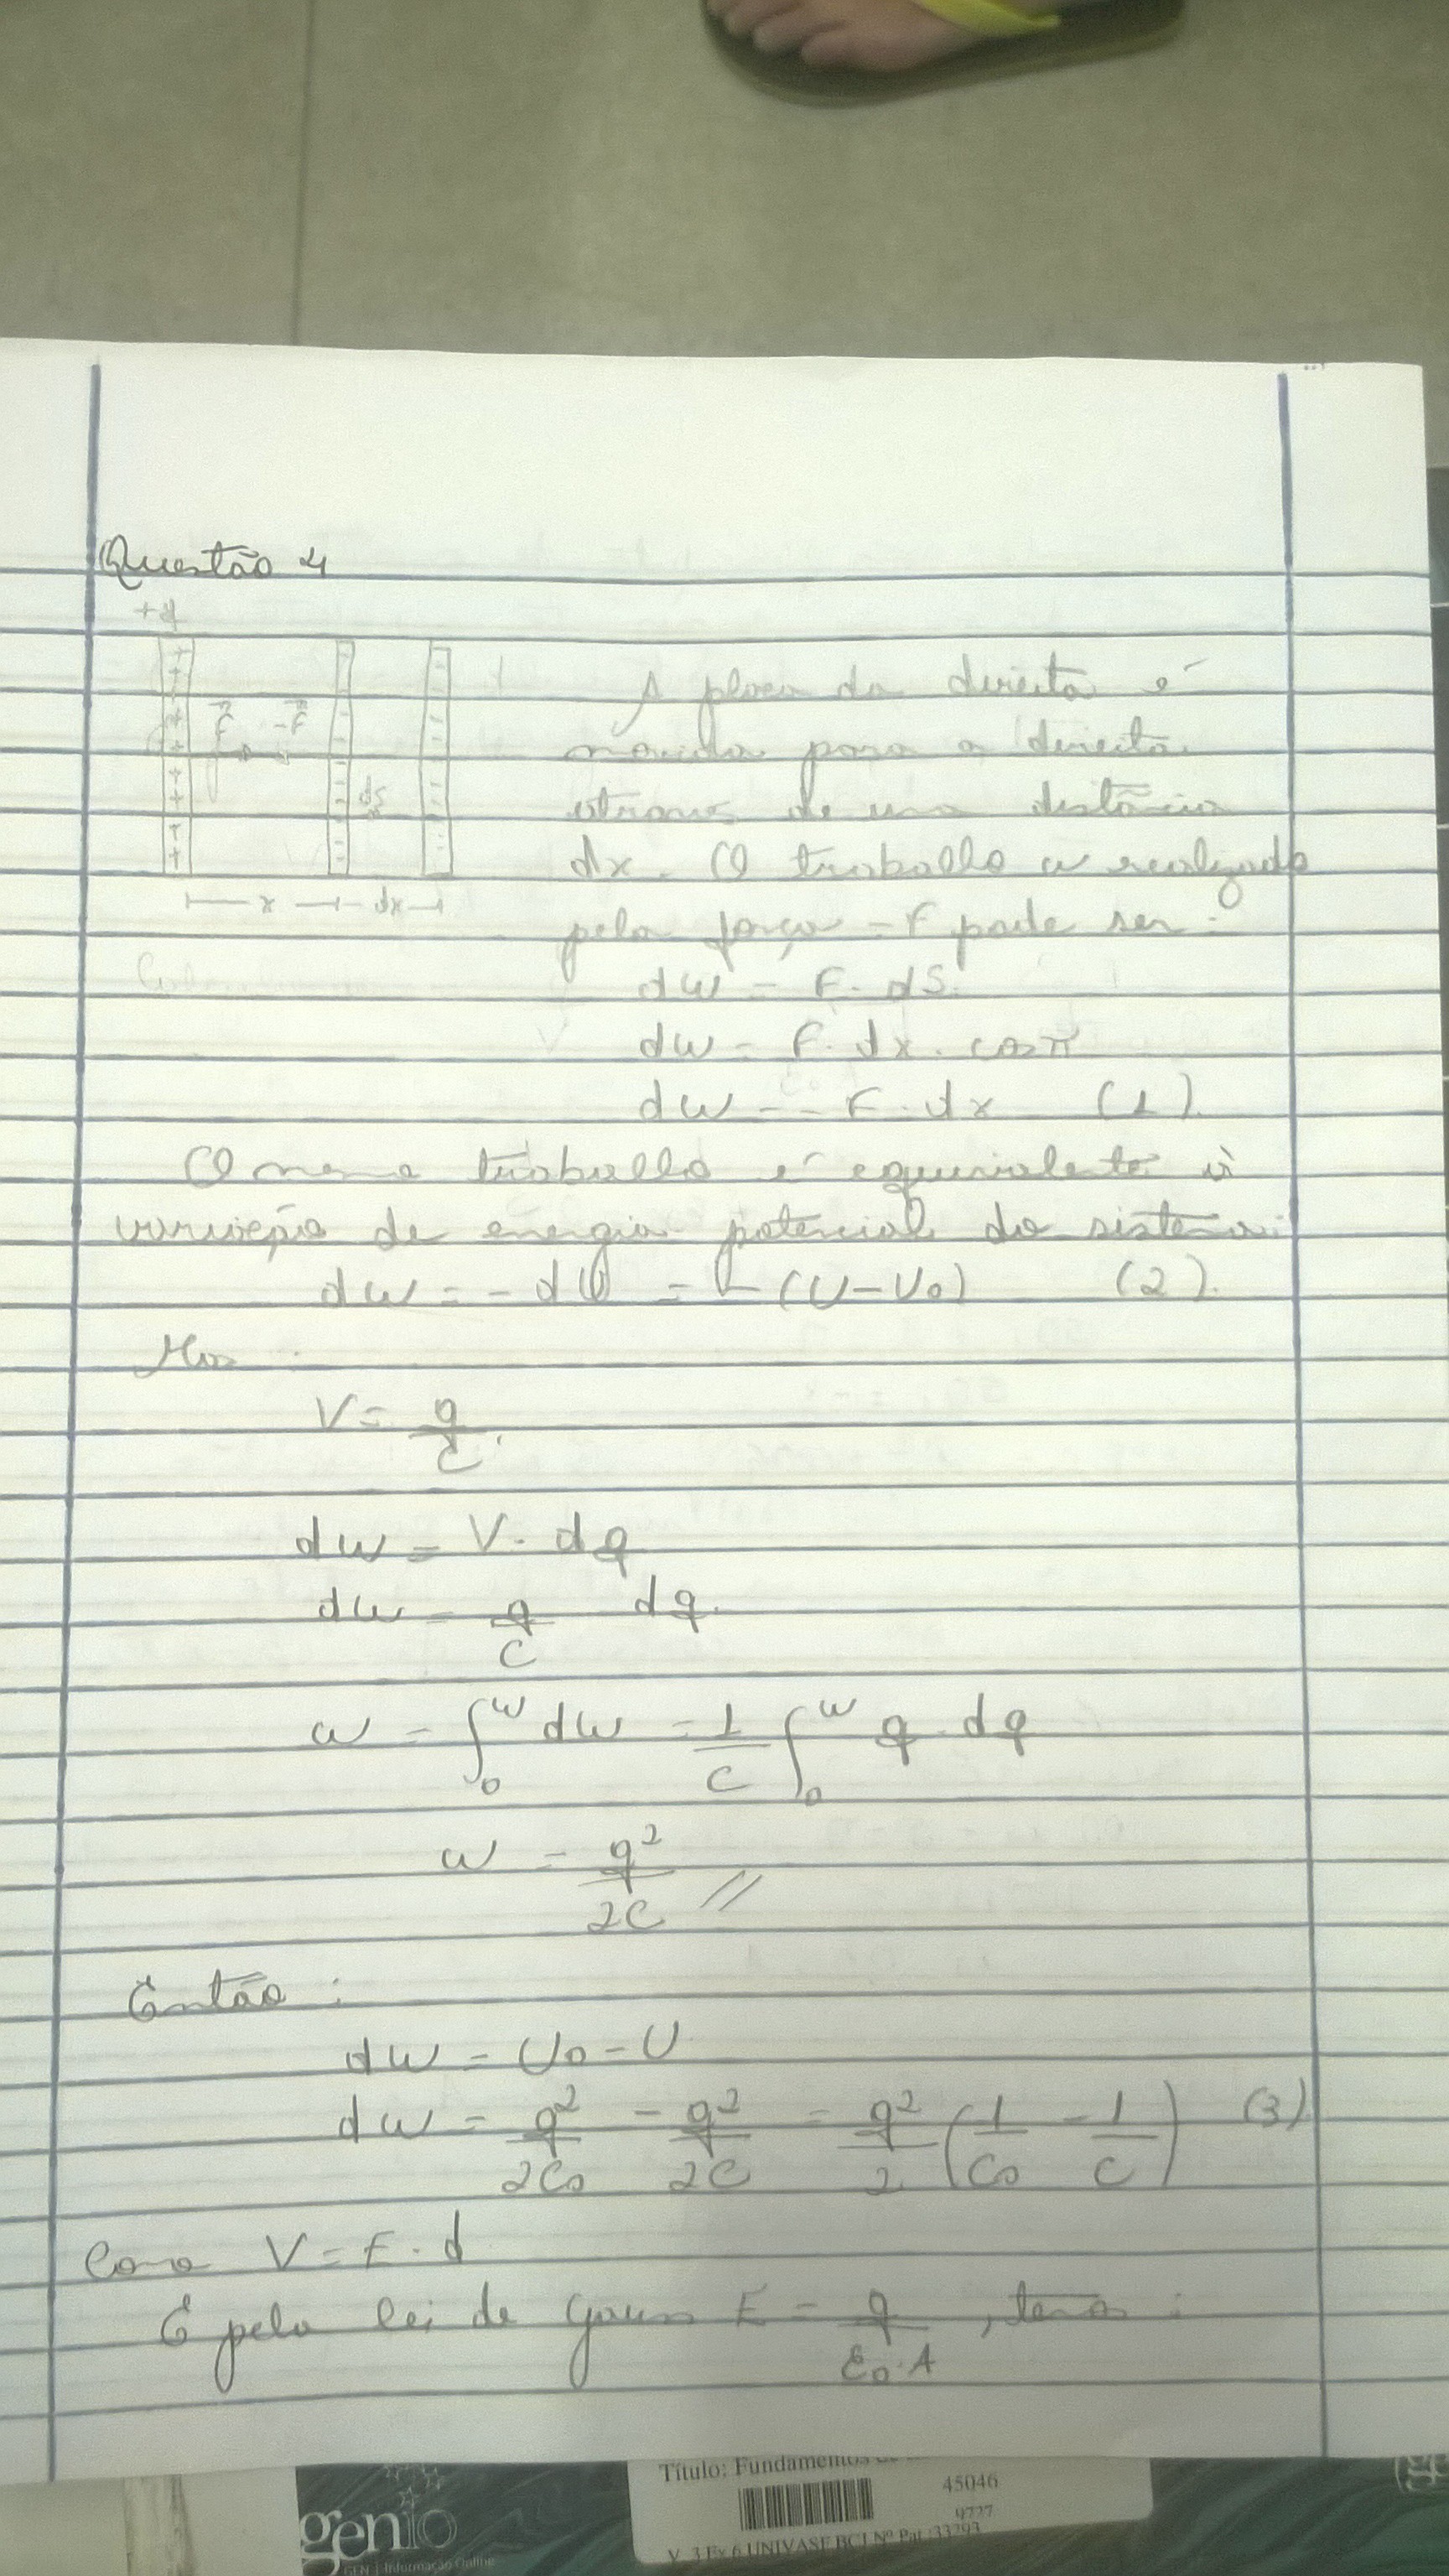 Questão 4
+q
F -F
dS
x dx
A placa da direita é
movida para a direita
através de uma distância
dx. O trabalho w realizado
pela força -F pode ser:
dw = F. dS.
dw = F. dx. cos π
dw = - F. dx (1).
O mesmo trabalho é equivalente à
variação de energia potencial do sistema:
dw = - dU = - (U - U0) (2).
Mas:
V = q/C.
dw = V. dq
dw = q/C dq.
w = ∫₀ʷ dw = 1/C ∫₀ʷ q. dq
w = q²/2C //
Então:
dw = U0 - U
dw = q²/2C0 - q²/2C = q²/2 (1/C0 - 1/C) (3)
Como V = E. d
E pela lei de Gauss E = q/ε0.A , temos:
Título: Fundamentos
45046
9727
V. 3 Ex 6 UNIVASF BCJ Nº Pat.:33793
genio
GEN | Informação Online